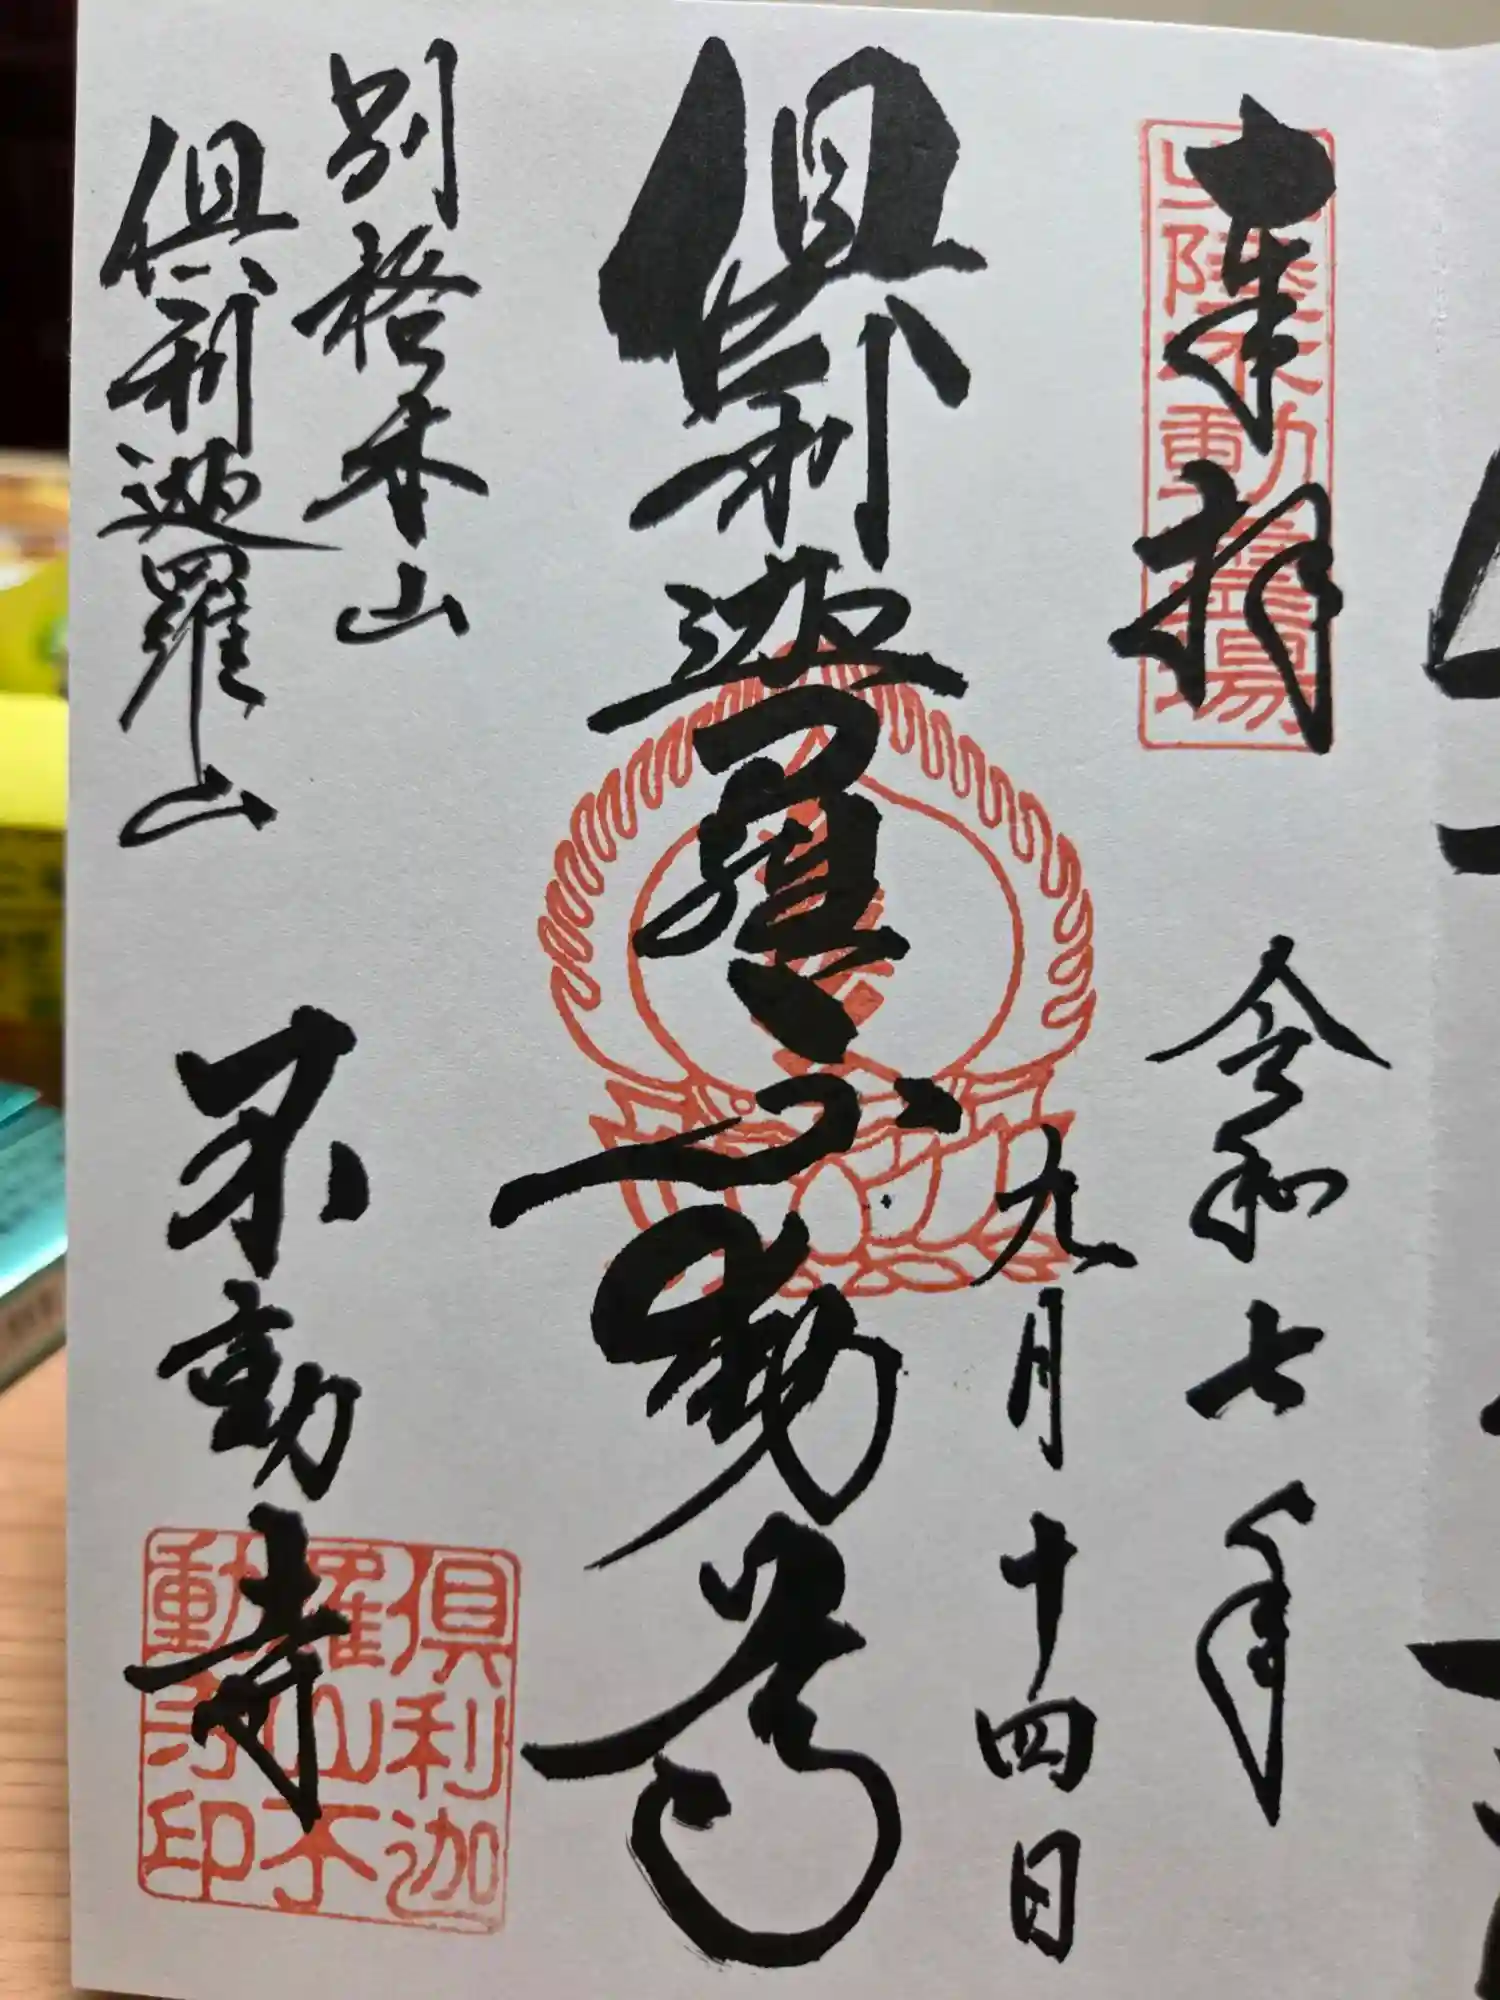 奉拝
北陸不動霊場
令和七年
九月十四日
倶利迦羅不動尊
別格本山
倶利迦羅山
不動寺
倶利迦
羅山不
動寺印